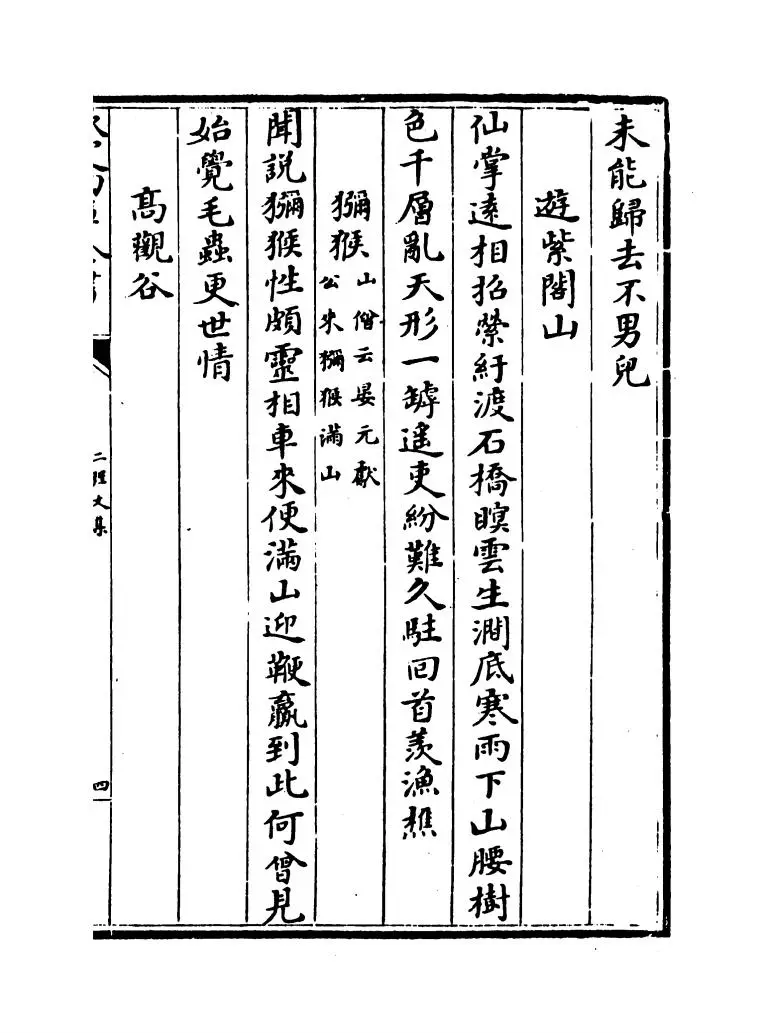 未能歸去不男兒
遊紫閣山
仙掌遠相招縈紆渡石橋暝雲生澗底寒雨下山腰樹
色千層亂天形一罅遥吏紛難久駐回首羡漁樵
獼猴山僧云晏元獻
公來獼猴滿山
聞說獼猴性頗靈相車來便滿山迎鞭羸到此何曾見
始覺毛蟲更世情
高觀谷
二程文集
四